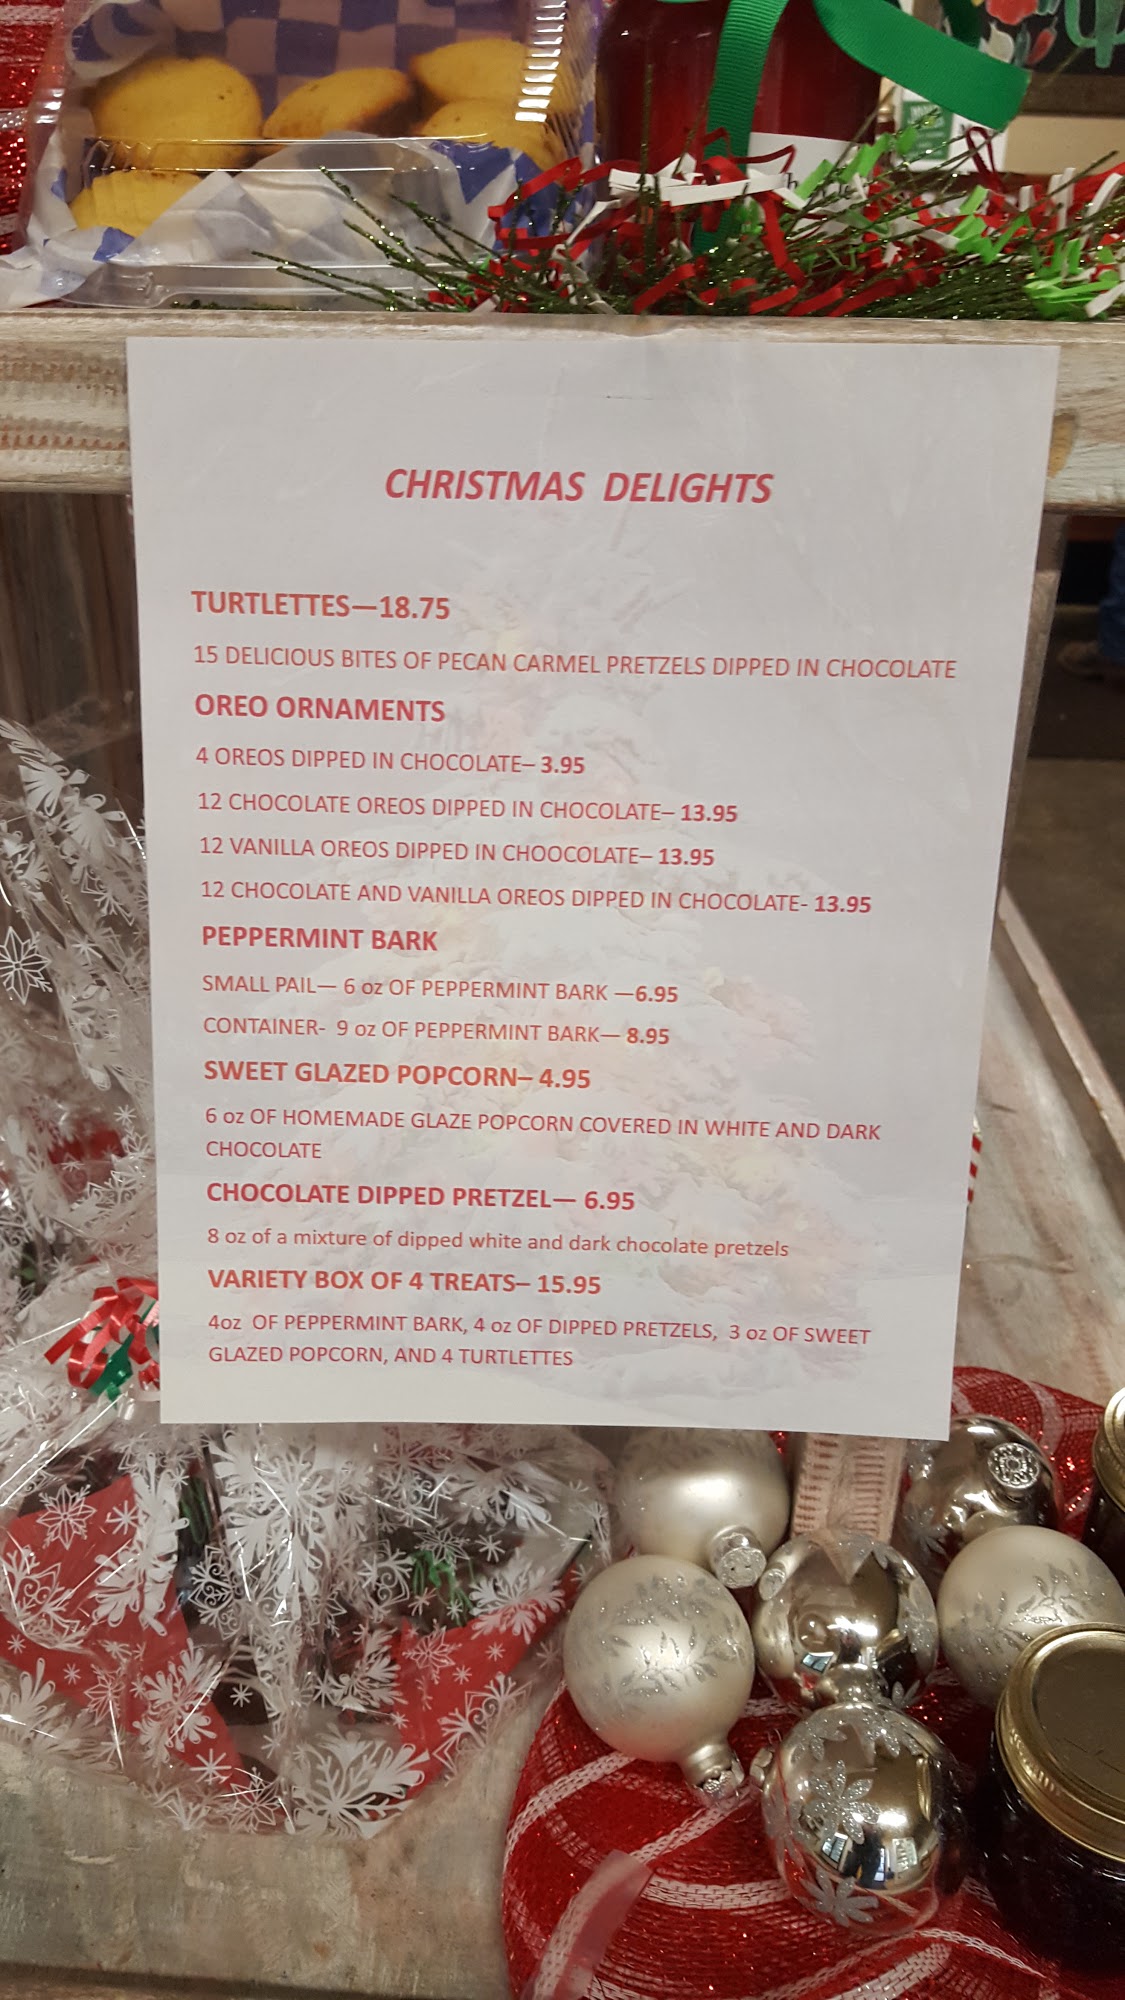 CHRISTMAS DELIGHTS
TURTLETTES—18.75
15 DELICIOUS BITES OF PECAN CARMEL PRETZELS DIPPED IN CHOCOLATE
OREO ORNAMENTS
4 OREOS DIPPED IN CHOCOLATE– 3.95
12 CHOCOLATE OREOS DIPPED IN CHOCOLATE– 13.95
12 VANILLA OREOS DIPPED IN CHOOCOLATE– 13.95
12 CHOCOLATE AND VANILLA OREOS DIPPED IN CHOCOLATE- 13.95
PEPPERMINT BARK
SMALL PAIL— 6 oz OF PEPPERMINT BARK —6.95
CONTAINER- 9 oz OF PEPPERMINT BARK— 8.95
SWEET GLAZED POPCORN– 4.95
6 oz OF HOMEMADE GLAZE POPCORN COVERED IN WHITE AND DARK
CHOCOLATE
CHOCOLATE DIPPED PRETZEL— 6.95
8 oz of a mixture of dipped white and dark chocolate pretzels
VARIETY BOX OF 4 TREATS– 15.95
4oz OF PEPPERMINT BARK, 4 oz OF DIPPED PRETZELS, 3 oz OF SWEET
GLAZED POPCORN, AND 4 TURTLETTES